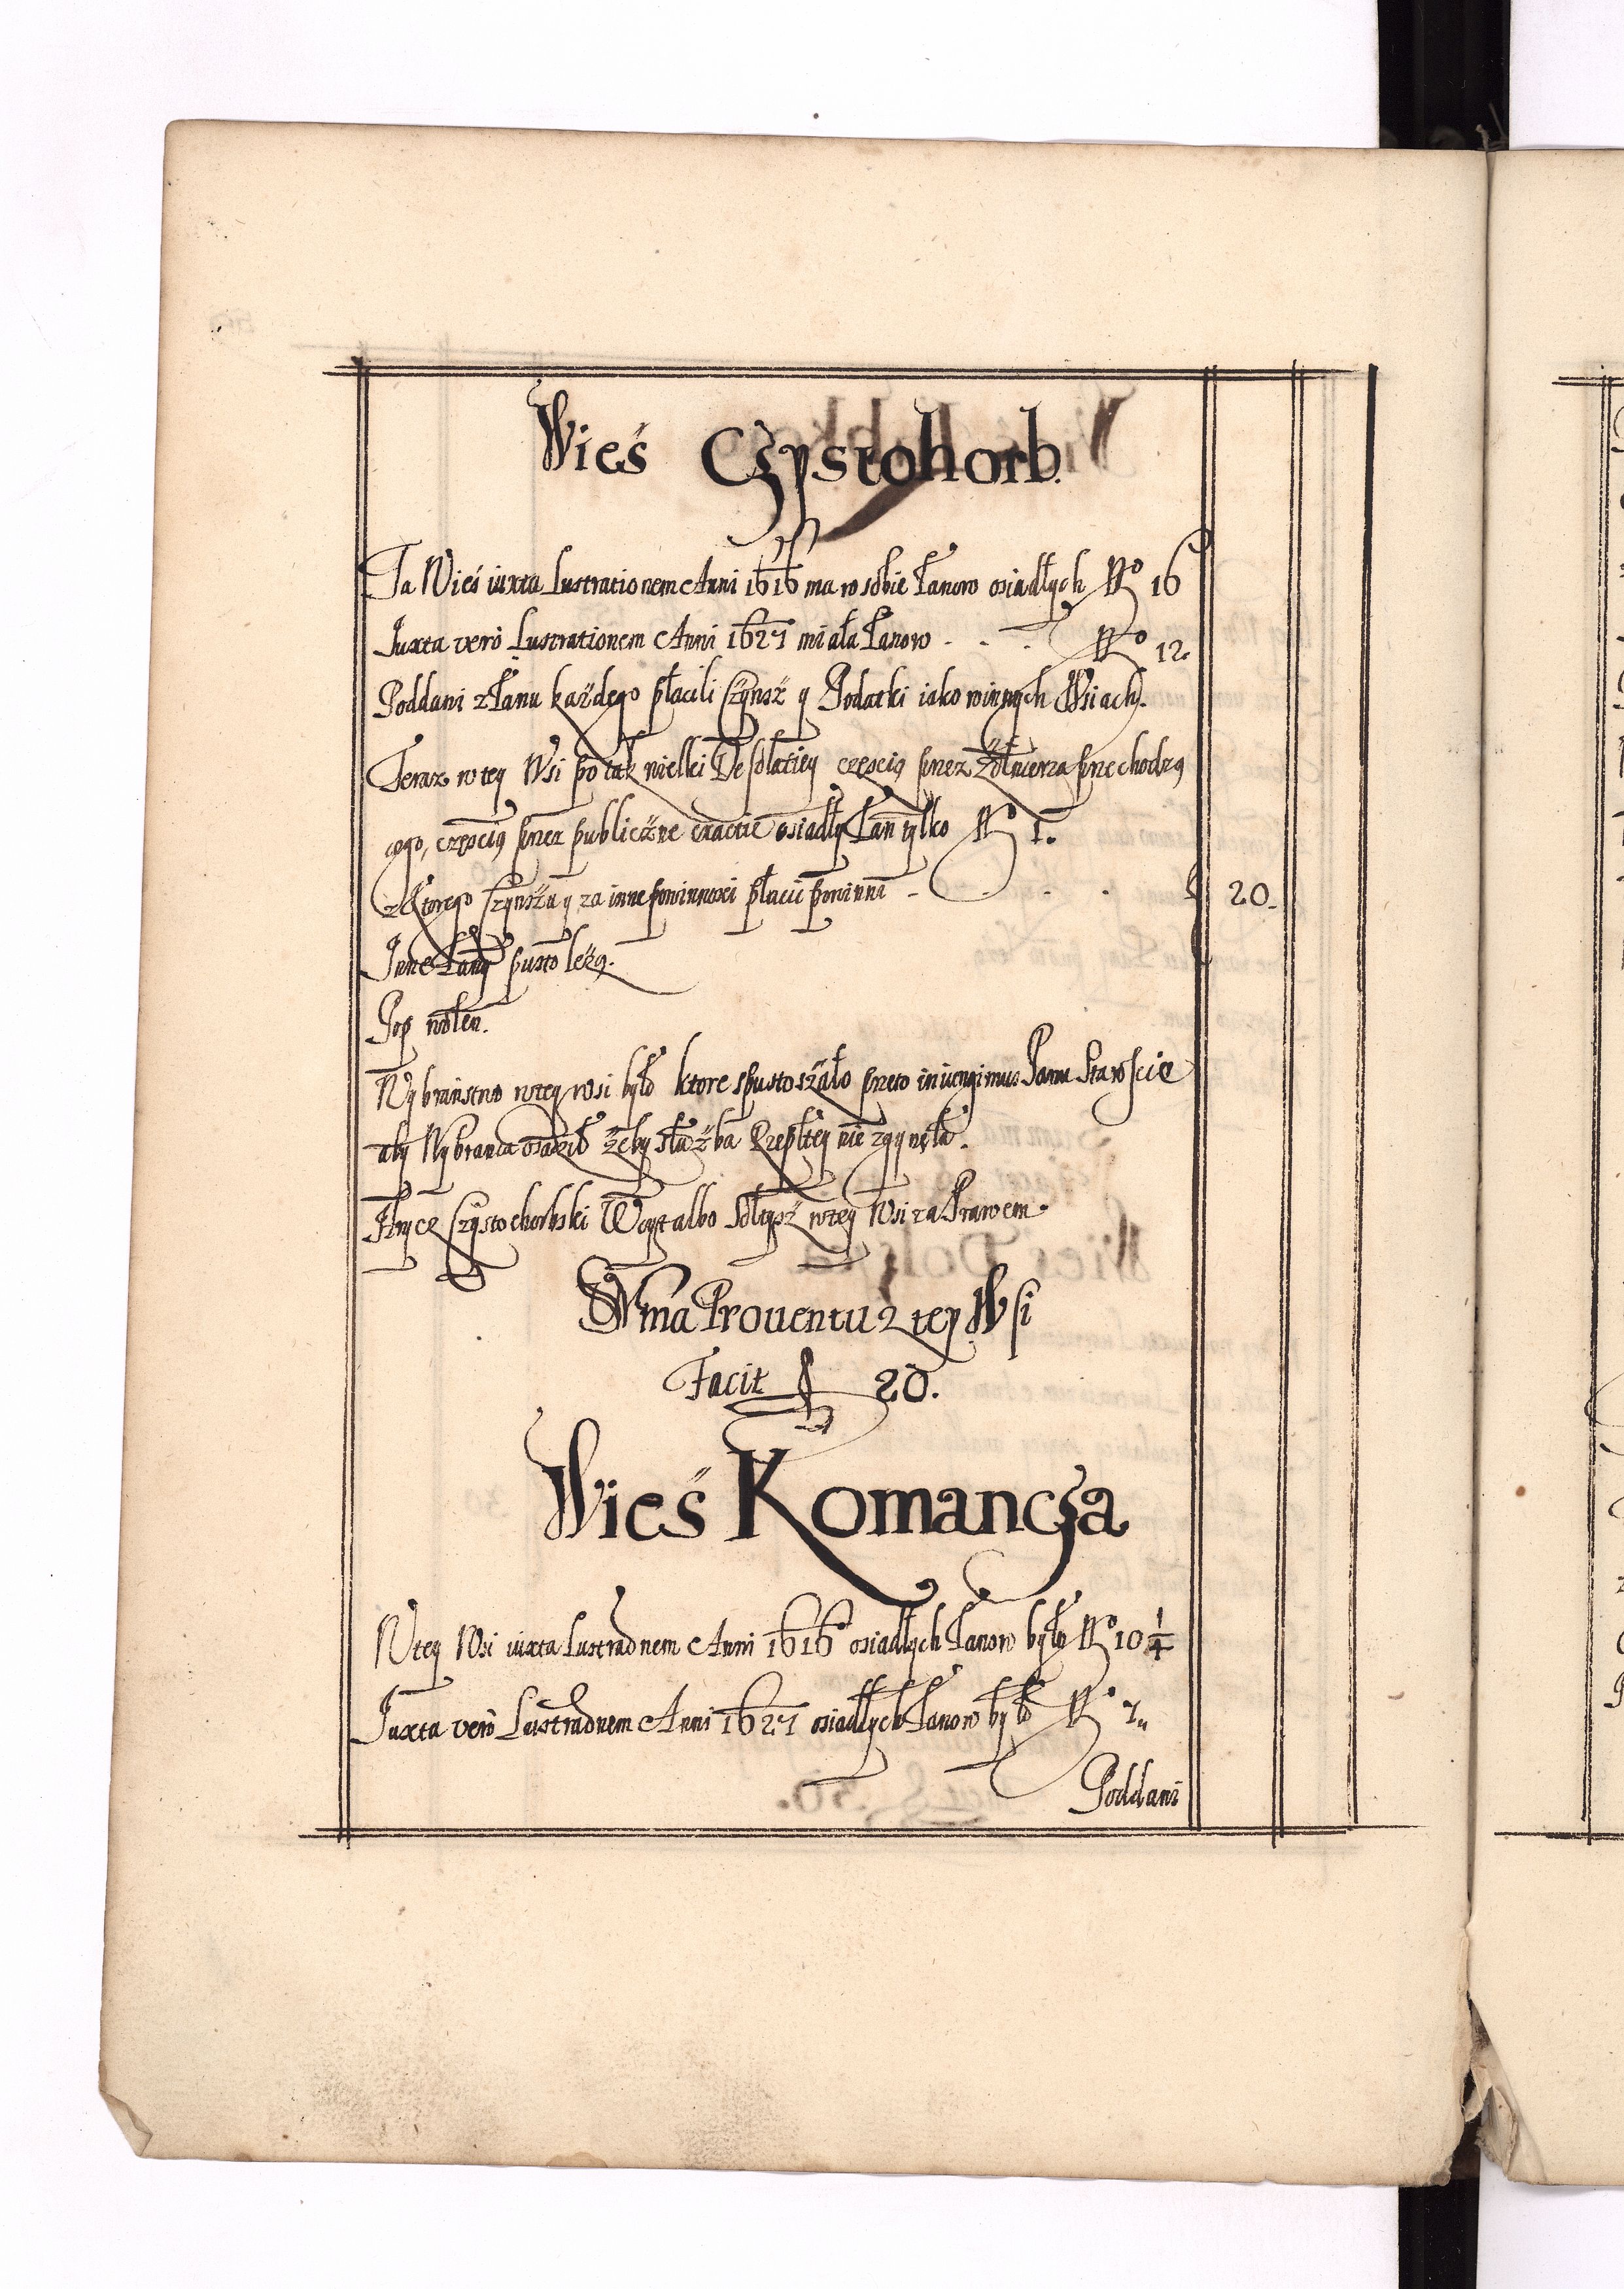 Wieś Czystohorb.
Ta Wieś iuxta Lustrationem Anni 1616 ma w sobie Łanow osiadłych Nro 16
Juxta verò Lustrationem Anni 1627 miała Łanow - - - Nro 12.
Poddani z Łanu każdego płacili Czynsz y Podatki iako w innych Wsiach.
Teraz w tey Wsi po tak wielki Desolatiey częscią przez Żołnierza przechodzą
cego, częscią przez publiczne exactie osiadły Łan tylko Nro 1.
z Ktorego Czynszu y za inne powinnosci płacić powinni - - - - f 20.
Inne Łany pusto leżą.
Pop wolen.
Wybraństwo w tey wsi było ktore spustoszało przeto iniungimus Panu Staroscie
aby Wybrańca osadził żeby służba Rzeplitey nie zgynęła.
Hryc Czystochorbski Woyt albo Sołtysz w tey Wsi za Prawem.
Suma Prouentu z tey Wsi
Facit f 20.
Wieś Komancza
W tey Wsi iuxta Lustraonem Anni 1616 osiadłych Łanow było Nro 10 1/4
Juxta verò Lustraonem Anni 1627 osiadłych Łanow było Nro 7.
Poddani